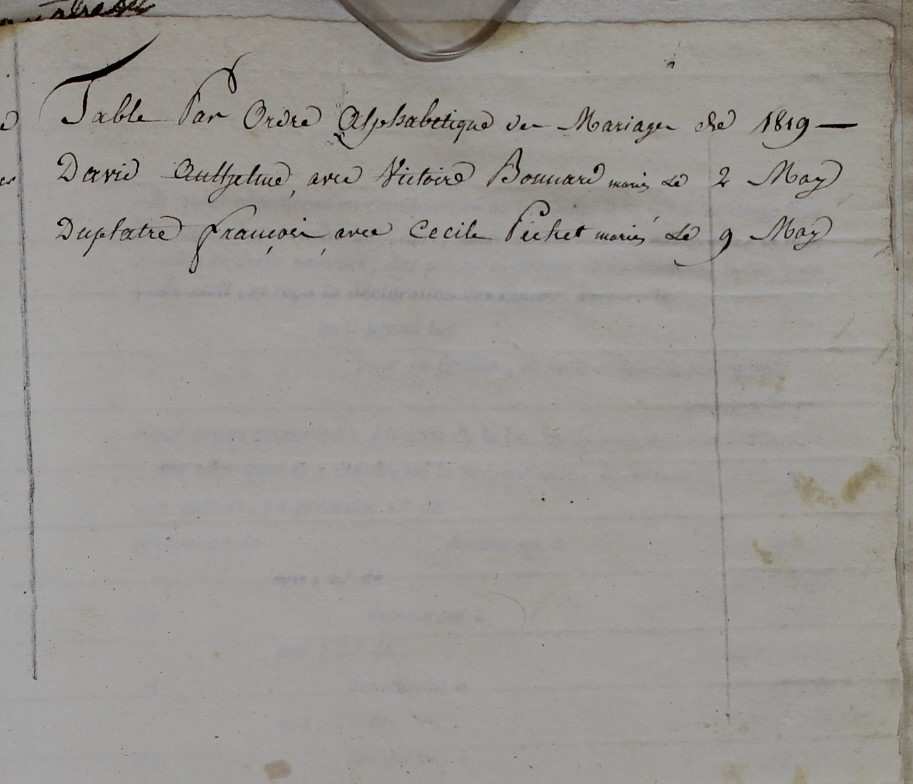 Table Par Ordre Alphabetique des Mariages de 1819 —
David Anthelme, avec Victoire Bonnard mariés Le 2 May
Duplatre françois, avec Cecile Pichet mariés Le 9 May